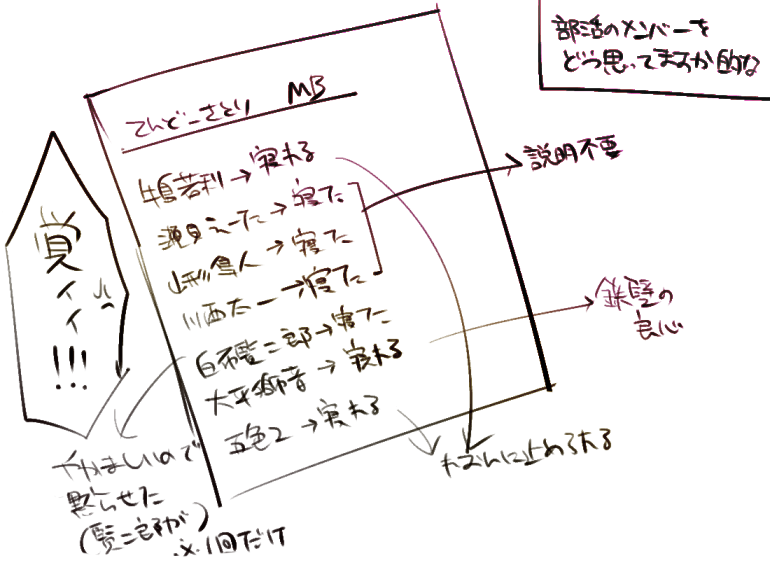 部活のメンバーを
どう思ってますか的な
てんどーさとり MB
牛島若利→寝れる
瀬見えーた→寝てた
山形隼人→寝てた
川西たー→寝てた
白布賢二郎→寝てた
大平獅音→寝れる
五色工→寝れる
説明不要
鉄壁の
良心
れおんに止められる
覚ィィッ
!!!
やかましいので
黙らせた
(賢二郎が)
※1回だけ